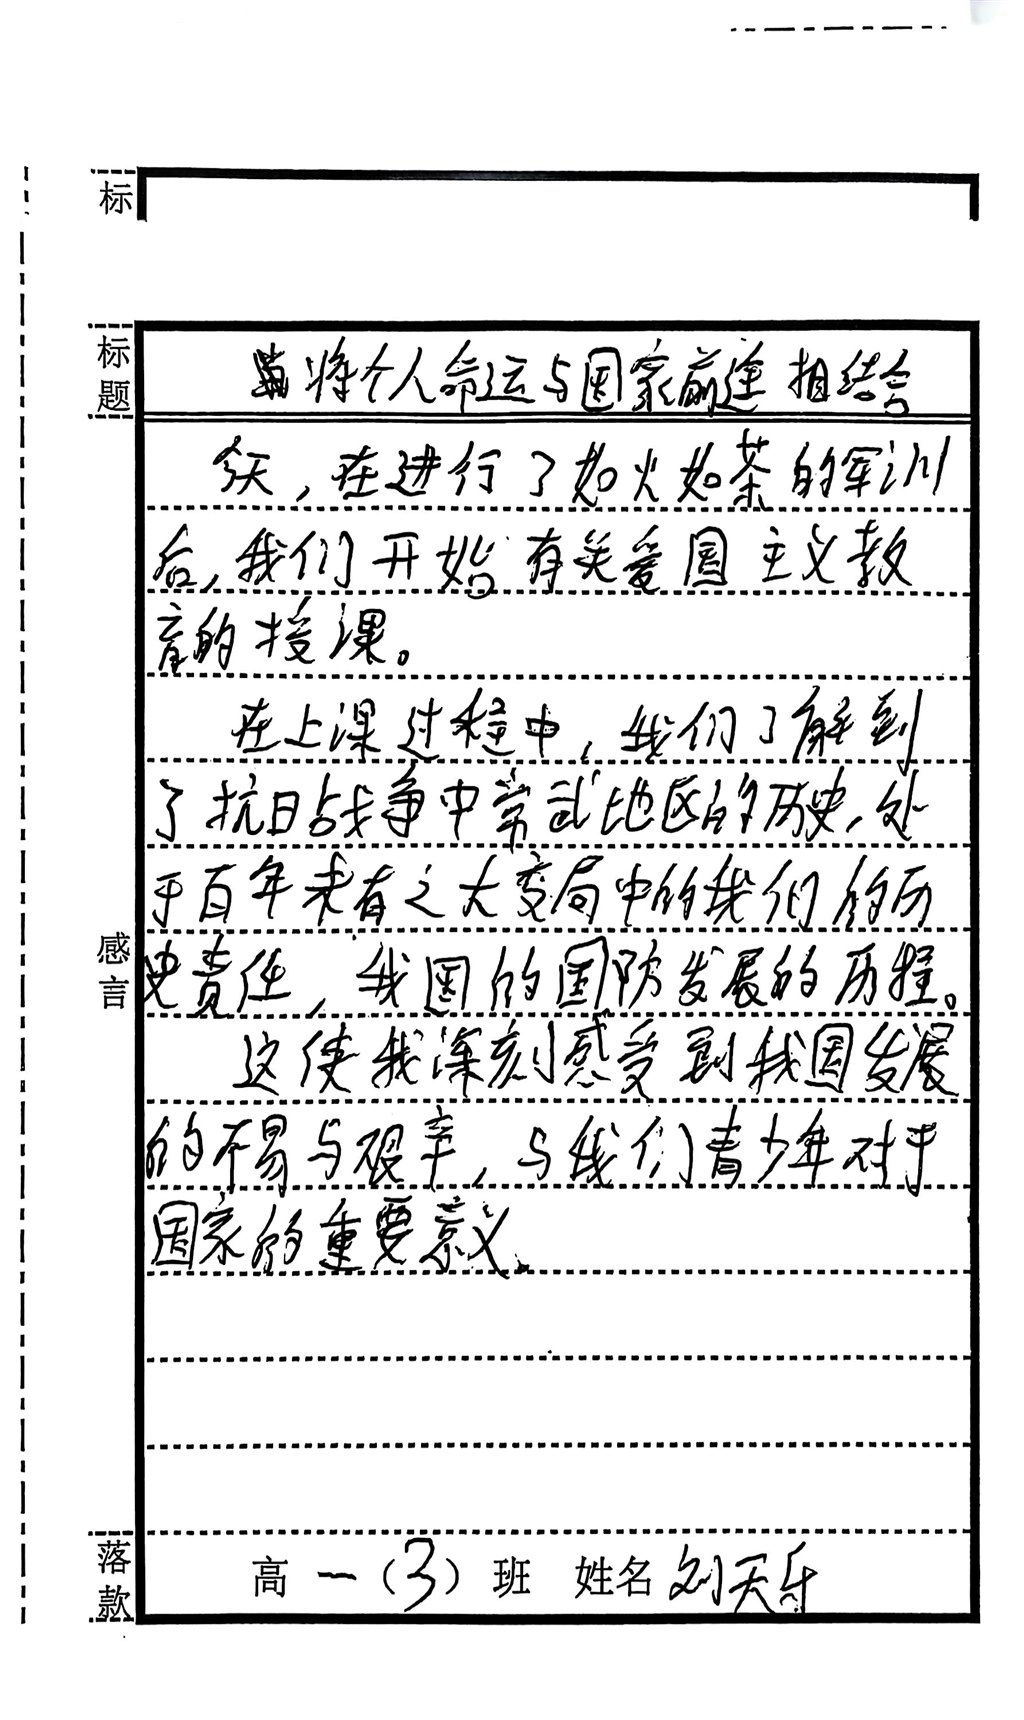 标
标题
将个人命运与国家前途相结合
今天,在进行了如火如茶的军训
后,我们开始有关爱国主义教
育的授课。
在上课过程中,我们了解到
了抗日战争中常武地区的历史,处
于百年未有之大变局中的我们的历
史责任,我国的国防发展的历程。
感言
这使我深刻感受到我国发展
的不易与艰辛,与我们青少年对于
国家的重要意义。
落款
高一(3)班 姓名 刘天乐